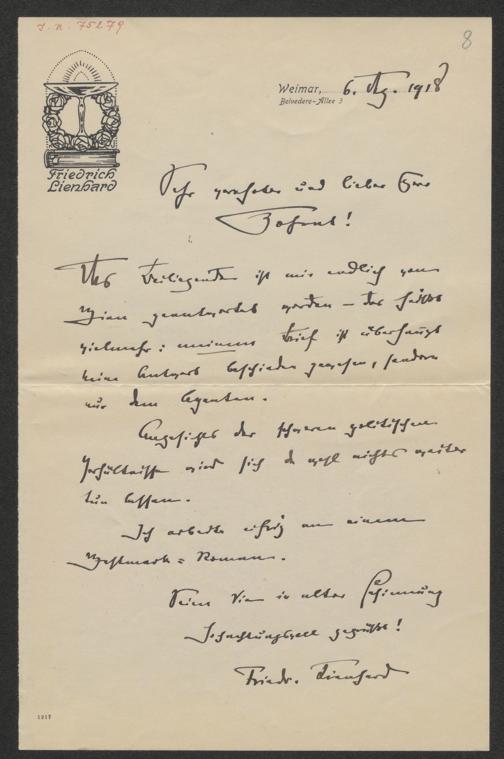 I. N. 75279
8
Friedrich
Lienhard
Weimar, 6. Aug. 1918
Belvedere-Allee 3
Sehr verehrter und lieber Herr
Bohrmt!
Beiliegendes ist mir endlich von
Wien geantwortet worden – das heißt
vielmehr: meinem Brief ist überhaupt
keine Antwort beschieden gewesen, sondern
nur dem Agenten.
Angesichts der schweren politischen
Verhältnisse wird sich da wohl nichts weiter
tun lassen.
Ich arbeite eifrig an einem
Westmark-Roman.
Seien Sie in alter Gesinnung
hochachtungsvoll gegrüßt!
Friedr. Lienhard
1917